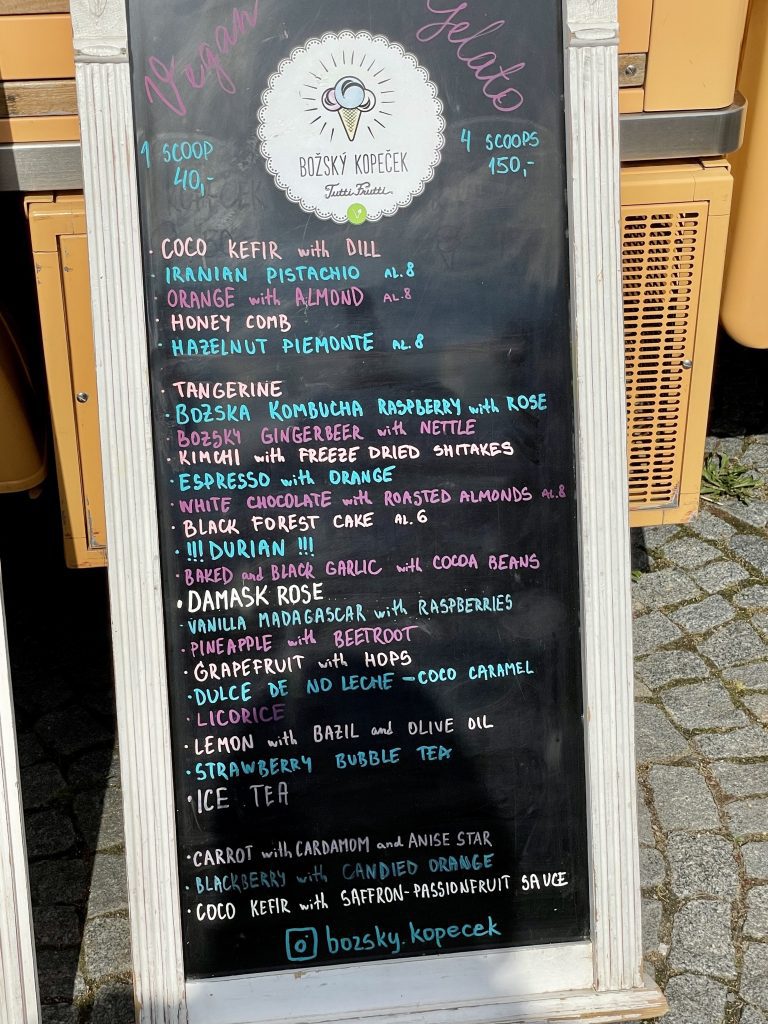 Vegan
Gelato
BOŽSKÝ KOPEČEK
Tutti Frutti
1 SCOOP
40,-
4 SCOOPS
150,-
· COCO KEFIR with DILL
· IRANIAN PISTACHIO AL.8
· ORANGE with ALMOND AL.8
· HONEY COMB
· HAZELNUT PIEMONTE AL.8
· TANGERINE
· BOŽSKA KOMBUCHA RASPBERRY with ROSE
· BOZSKY GINGERBEER with NETTLE
· KIMCHI with FREEZE DRIED SHITAKES
· ESPRESSO with ORANGE
· WHITE CHOCOLATE with ROASTED ALMONDS AL.8
· BLACK FOREST CAKE AL.6
· !!! DURIAN !!!
· BAKED and BLACK GARLIC with COCOA BEANS
· DAMASK ROSE
· VANILLA MADAGASCAR with RASPBERRIES
· PINEAPPLE with BEETROOT
· GRAPEFRUIT with HOPS
· DULCE DE NO LECHE - COCO CARAMEL
· LICORICE
· LEMON with BAZIL and OLIVE OIL
· STRAWBERRY BUBBLE TEA
· ICE TEA
· CARROT with CARDAMOM and ANISE STAR
· BLACKBERRY with CANDIED ORANGE
· COCO KEFIR with SAFFRON-PASSIONFRUIT SAUCE
bozsky.kopecek